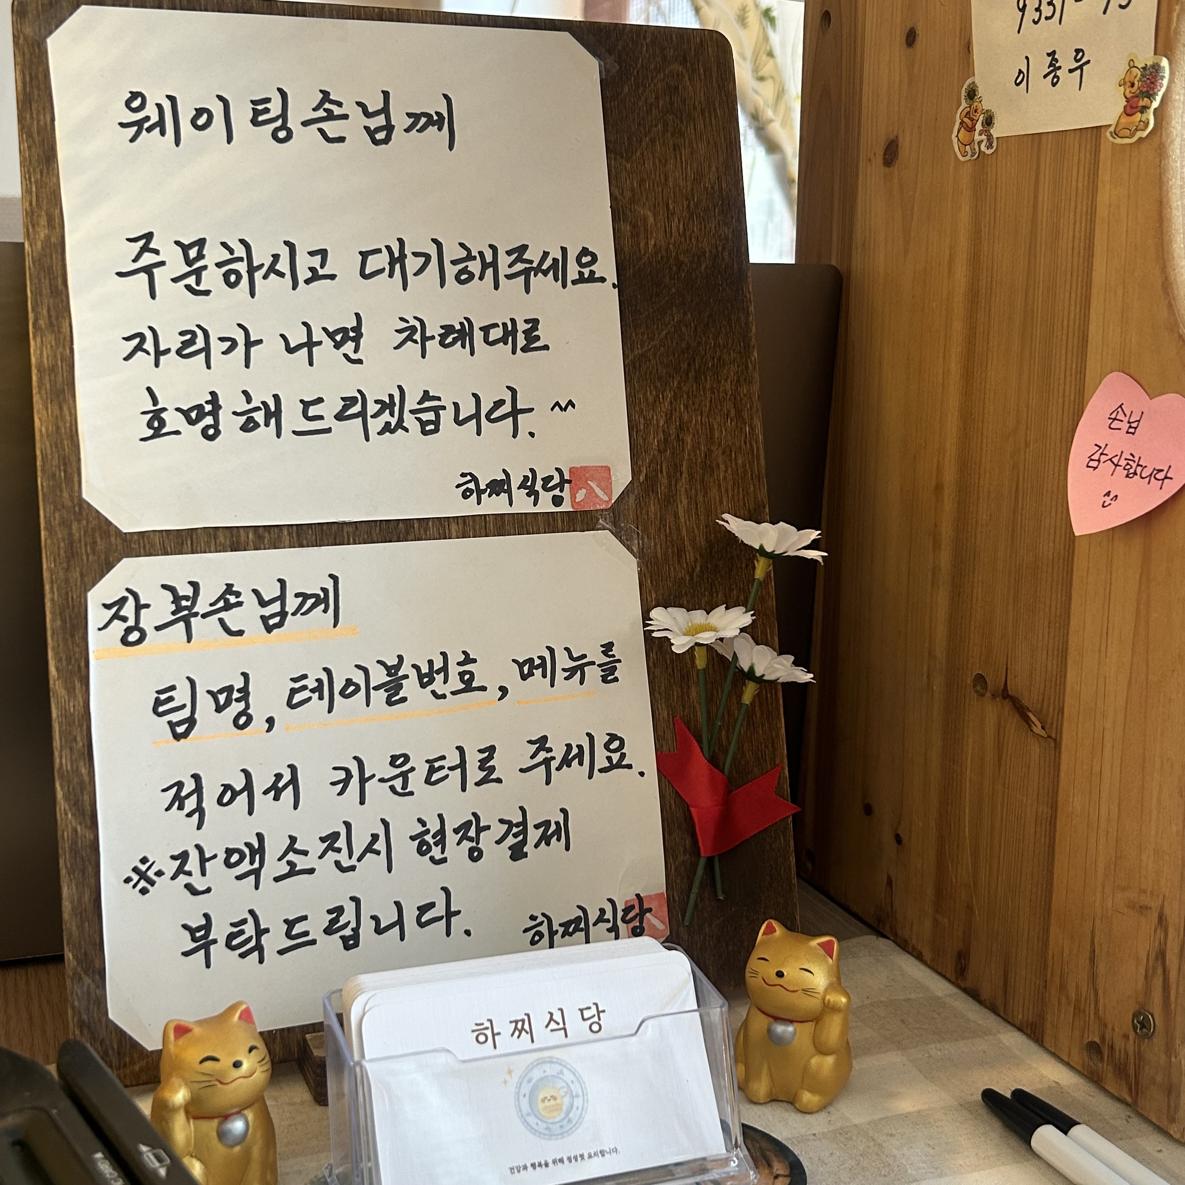 웨이팅손님께
주문하시고 대기해주세요.
자리가 나면 차례대로
호명해드리겠습니다. ^^
하찌식당
八
장부손님께
팀명, 테이블번호, 메뉴를
적어서 카운터로 주세요.
※잔액소진시 현장결제
부탁드립니다.
하찌식당
하찌식당
건강과 행복을 위해 정성껏 요리합니다.
이종우
손님
감사합니다